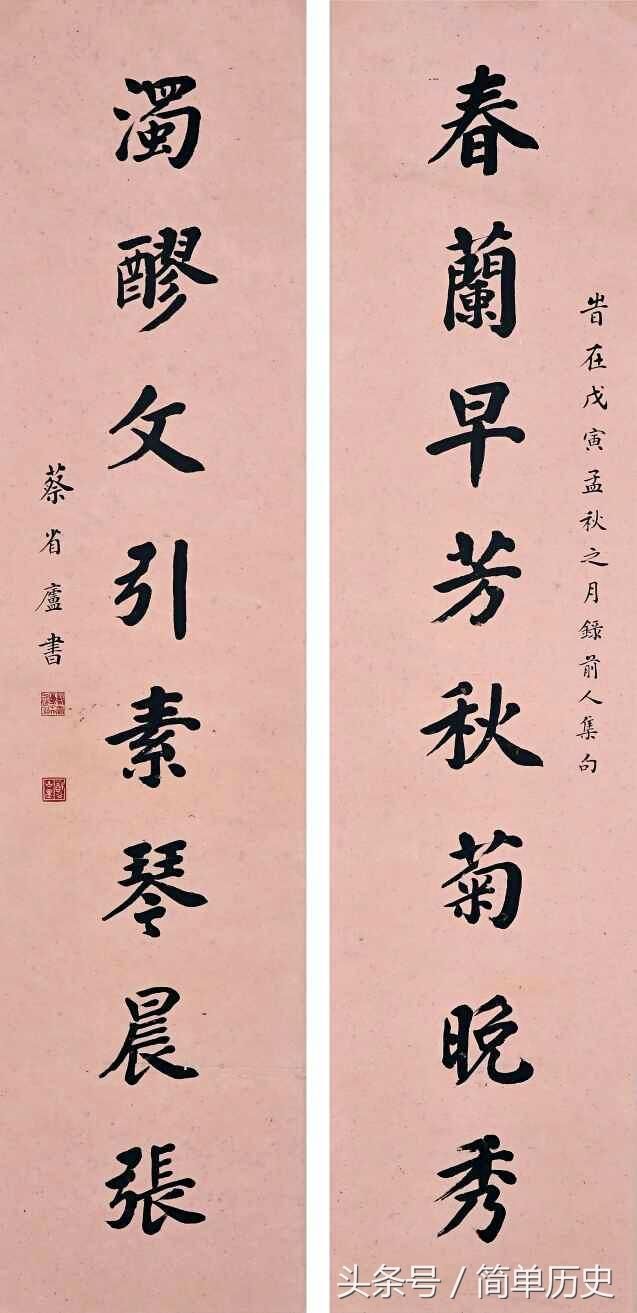 旹在戊寅孟秋之月錄前人集句
春蘭早芳秋菊晚秀
濁醪文引素琴晨張
蔡省廬書
头条号 / 简单历史